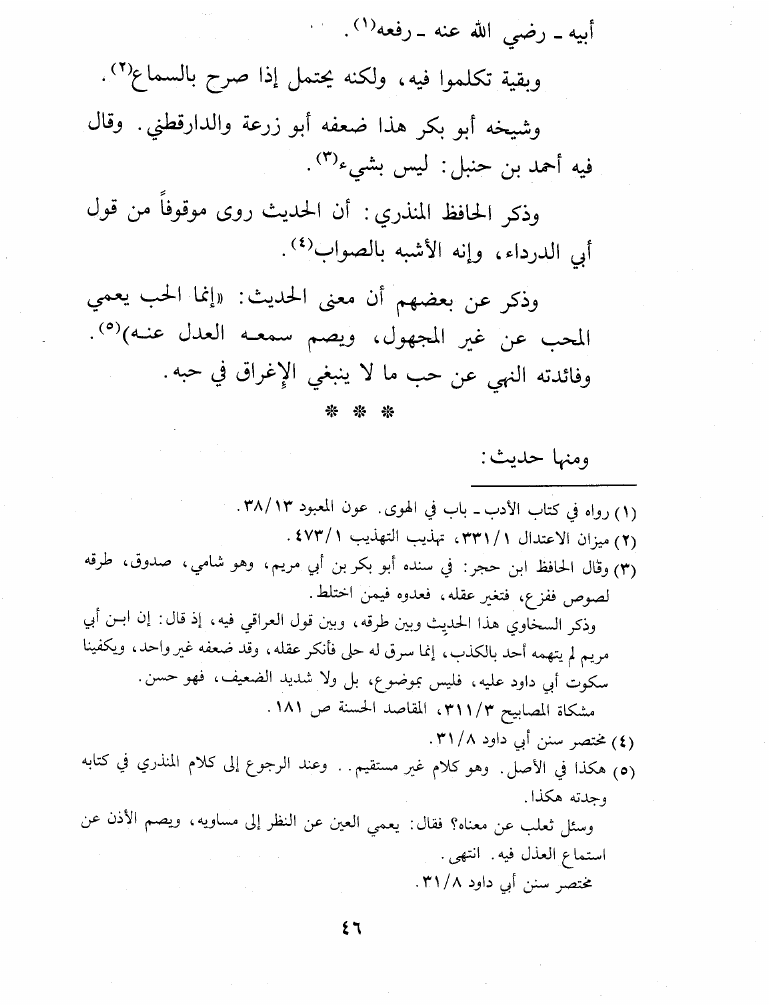 أبيه ـ رضي الله عنه ـ رفعه(١).
وبقية تكلموا فيه، ولكنه يحتمل إذا صرح بالسماع(٢).
وشيخه أبو بكر هذا ضعفه أبو زرعة والدارقطني. وقال
فيه أحمد بن حنبل: ليس بشيء(٣).
وذكر الحافظ المنذري: أن الحديث روى موقوفاً من قول
أبي الدرداء، وإنه الأشبه بالصواب(٤).
وذكر عن بعضهم أن معنى الحديث: «إنما الحب يعمي
المحب عن غير المجهول، ويصم سمعه العدل عنه)(٥).
وفائدته النهي عن حب ما لا ينبغي الإغراق في حبه.
* * *
ومنها حديث:
(١) رواه في كتاب الأدب ـ باب في الهوى. عون المعبود ٣٨/١٣.
(٢) ميزان الاعتدال ٣٣١/١، تهذيب التهذيب ٤٧٣/١.
(٣) وقال الحافظ ابن حجر: في سنده أبو بكر بن أبي مريم، وهو شامي، صدوق، طرقه
لصوص ففزع، فتغير عقله، فعدوه فيمن اختلط.
وذكر السخاوي هذا الحديث وبين طرقه، وبين قول العراقي فيه، إذ قال: إن ابن أبي
مريم لم يتهمه أحد بالكذب، إنما سرق له حلى فأنكر عقله، وقد ضعفه غير واحد، ويكفينا
سكوت أبي داود عليه، فليس بموضوع، بل ولا شديد الضعيف، فهو حسن.
مشكاة المصابيح ٣١١/٣، المقاصد الحسنة ص ١٨١.
(٤) مختصر سنن أبي داود ٣١/٨.
(٥) هكذا في الأصل. وهو كلام غير مستقيم.. وعند الرجوع إلى كلام المنذري في كتابه
وجدته هكذا.
وسئل ثعلب عن معناه؟ فقال: يعمي العين عن النظر إلى مساويه، ويصم الأذن عن
استماع العذل فيه. انتهى.
مختصر سنن أبي داود ٣١/٨.
٤٦